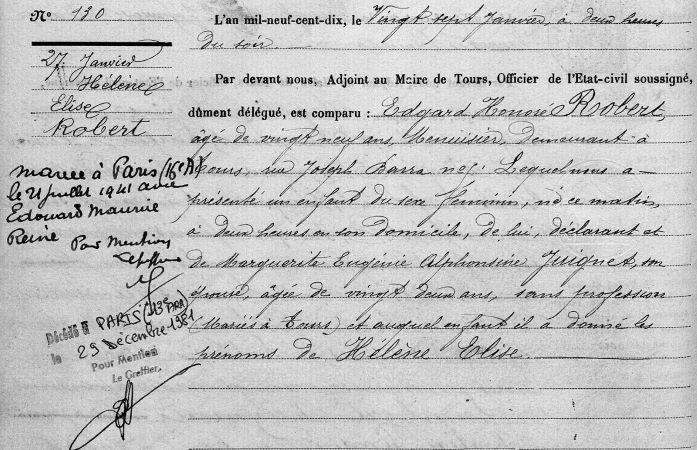 N° 130
27 Janvier
Hélène
Elise
Robert
mariée à Paris (16e A)
le 21 juillet 1941 avec
Edouard Maurice
Reine
Pour Mention
Décédé à PARIS (13e ARR)
le 29 décembre 1981
Pour Mention
Le Greffier
L'an mil-neuf-cent-dix, le Vingt sept Janvier, à deux heures
du soir.
Par devant nous, Adjoint au Maire de Tours, Officier de l'Etat-civil soussigné,
dûment délégué, est comparu : Edgard Honoré Robert,
âgé de vingt neuf ans, Menuisier, demeurant à
Tours, rue Joseph Barra n° Lequel nous a
présenté un enfant du sexe féminin, né ce matin,
à deux heures en son domicile, de lui, déclarant et
de Marguerite Eugénie Alphonsine Juignet, son
épouse, âgée de vingt deux ans, sans profession
(Mariés à Tours) et auquel enfant il a donné les
prénoms de Hélène Elise.